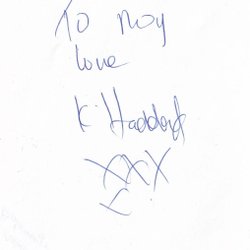 To Roy
love
K. Haddock
XXX
X